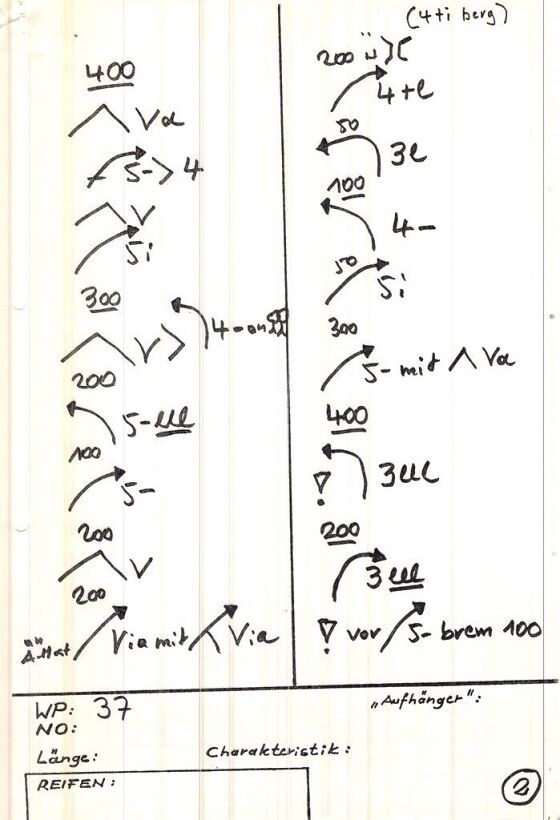 (4+i berg)
400
Va
5-> 4
V
5i
300
4-an
V >
200
5-lll
100
5-
200
V
200
Via mit Via
200
4+l
50
3l
100
4-
50
5i
300
5- mit Va
400
! 3lll
200
3lll
! vor 5- brem 100
WP: 37
NO:
„Aufhänger“:
Länge: Charakteristik:
REIFEN:
2